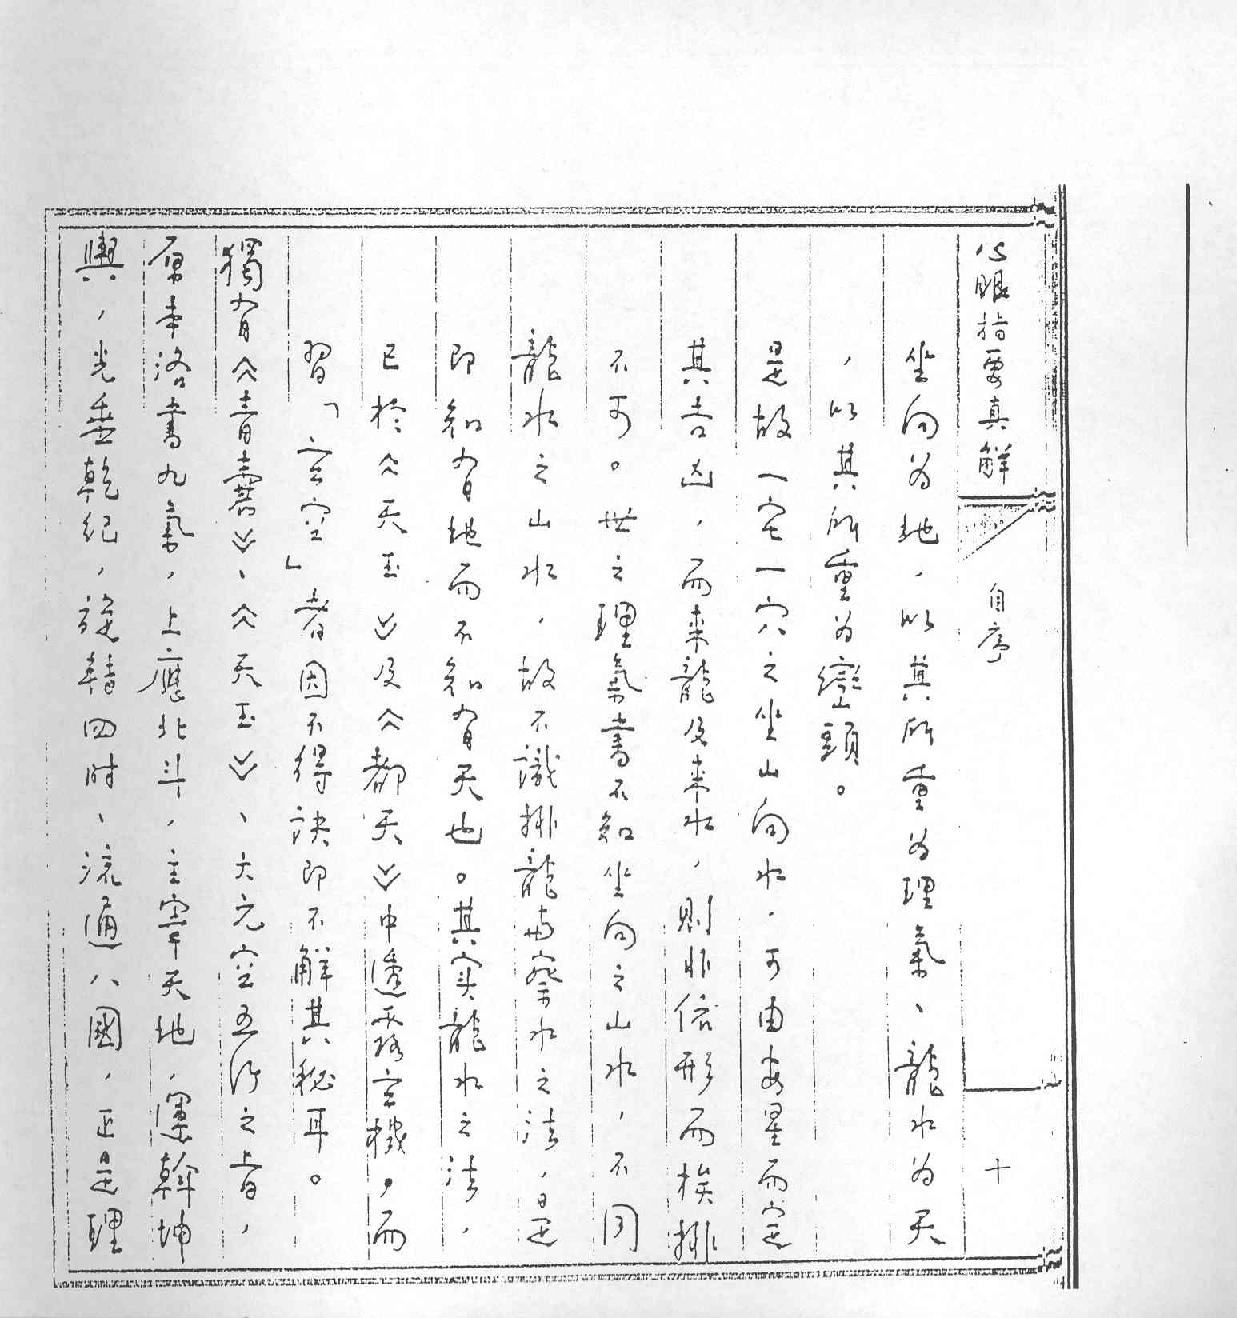 心眼指要真解
自序
十
坐向為地，以其所重為理氣、龍水為天
，以其所重為巒頭。
是故一宅一穴之坐山向水，可由安星而定
其吉凶，而來龍及來水，則非依形而挨排
不可。世之理氣書不知坐向之山水，不同
龍水之山水，故不識排龍與察水之法，是
即知有地而不知有天也。其实龍水之法，
已於《天玉》及《都天》中透露玄機，而
習「玄空」者因不得訣即不解其秘耳。
獨有《青囊》、《天玉》、大元空五行之旨，
原本洛書九氣，上應北斗，主宰天地，運斡坤
輿，光垂乾紀，旋轉四时、流通八國，正是理